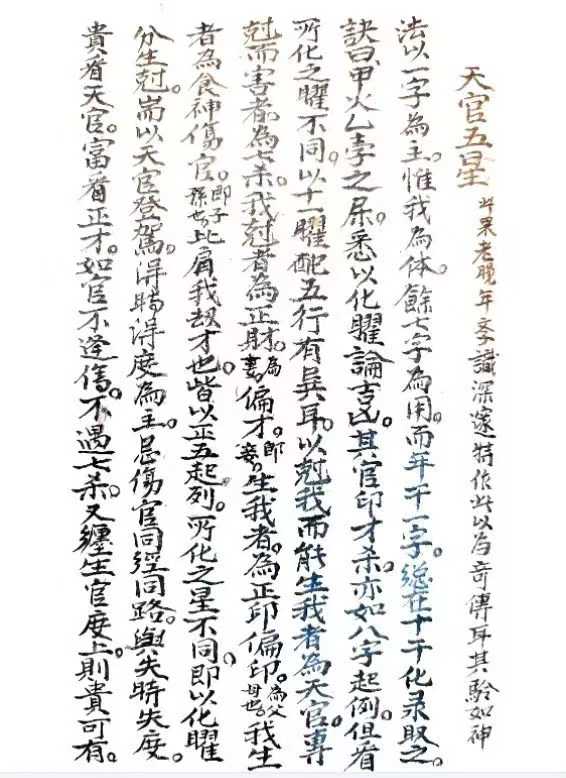 天官五星 此果老晚年學識深邃特作此以為奇傳耳其驗如神
法以一字為主。惟我為体。餘七字為用。而年干一字。總在十干化录取之。
訣曰甲火乙孛之屬。悉以化曜論吉凶。其官印才杀。亦如八字起例。但看
所化之曜不同。以十一曜配五行有異耳。以尅我而能生我者為天官。專
尅而害者。為七杀。我尅者為正財。為妻。偏才。即妾。生我者。為正印偏印。為父母也。我生
者為食神傷官。即子孫也。比肩我刼才也。皆以正五起列。所化之星不同。即以化曜
分生尅。耑以天官登駕。得時得度為主。忌傷官同經同路。與失時失度。
貴看天官。富看正才。如官不逢傷。不遇七杀。又纏生官度上。則貴可有。